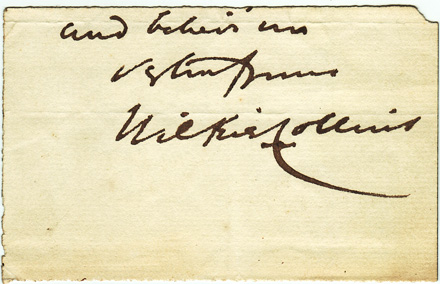 and believe me
vy truly yours
Wilkie Collins